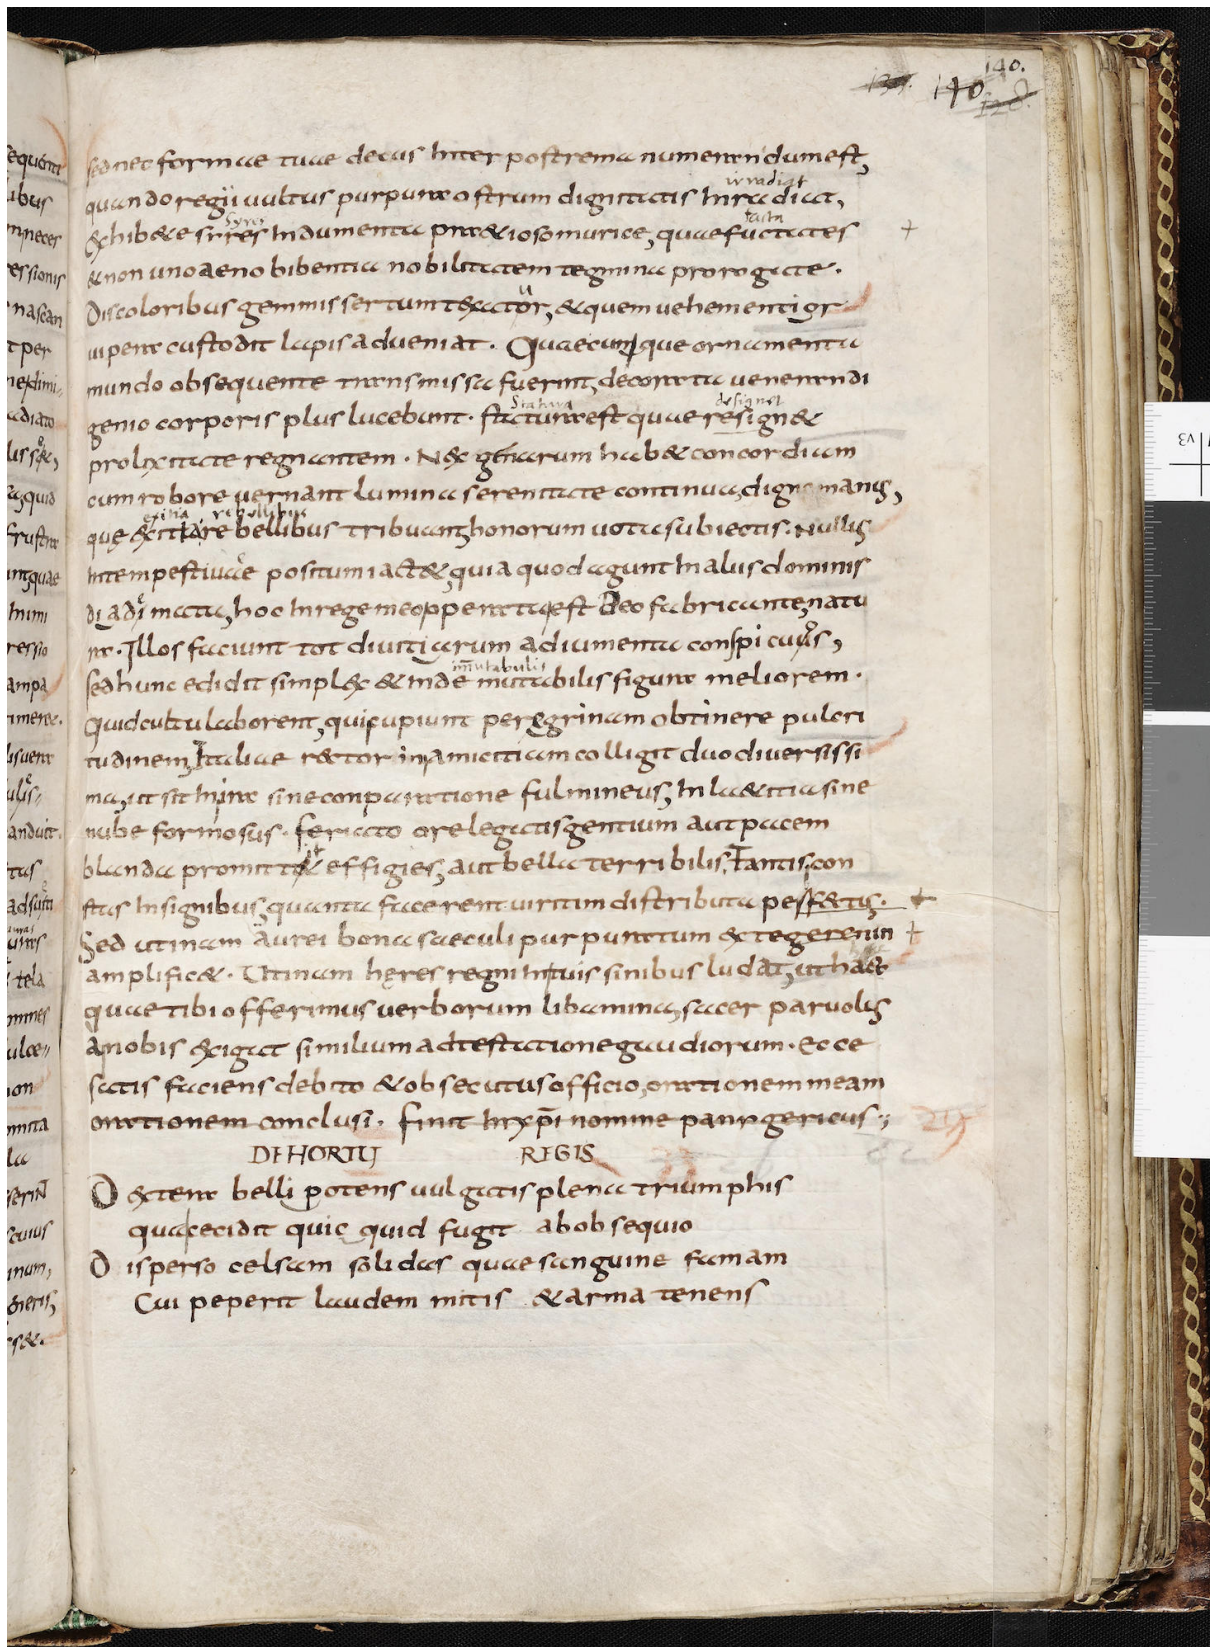 139. 140 140.
128.
sed nec formae tuae decus Inter postrema numerandum est,
quando regii uultus purpura ostrum dignitatis Inradiat,
irradiat
Exhibete sires Indumenta praetioso murice, quae fuctates
Syres
facta
& non uno aeno bibentia nobilitatem tegmina prorogate.
Discoloribus gemmis sertum texator, & quem uehementi gr
u
uipera custodit lapis adueniat. Quaecumque ornamenta
mundo obsequente transmissa fuerint, decorata uenerandi
genio corporis plus lucebunt. statura est quae resign&
Statura
designet
prolixitate regnantem. Nex genarum hab& concordiam
cum robore uernant lumina serenitate continua, digne manus,
que excitare bellibus tribuant, honorum uota subiectis. Nullus
exitia rebellibus
Intempestiuae positum iact&, quia quod agunt In aliis dominis
diademata, hoc In rege meo operata est Deo fabricante, natu
ra. Illos faciunt tot diuitiarum adiumenta conspicuus,
sed hunc edidit simplex & Inde mutabilis figura meliorem.
imutabilis
Quid cultu laborent, qui cupiunt peregrinam obtinere pulcri
tudinem, Italiae rector in amicitiam colligit duo diuersissi
ma, ut sit In ira sine conparatione fulmineus, In laetitia sine
nube formosus. feriato ore legatis gentium aut pacem
blanda promittit effigies, aut bella terribilis. Tantis con
stas Insignibus, quanta facerent uiritim distributa perfectis.
Sed utinam aurei bona saeculi purpuratum & tegerenin
amplific&. Utinam heres regni In tuis sinibus ludat, ut haec
quae tibi offerimus uerborum libamina, sacer paruolus
a nobis exigat similium adtestatione gaudiorum. Ecce
satis faciens debito & obsecutus officio, orationem meam
orationem conclusi. finit In xpi nomine panygericus;
DE HORTU REGIS
Dextera belli potens uulgatis plena triumphis
qua cecidit quic quid fugit ab obsequio
Disperso celsam solidas quae sanguine famam
Cui peperit laudem mitis & arma tenens